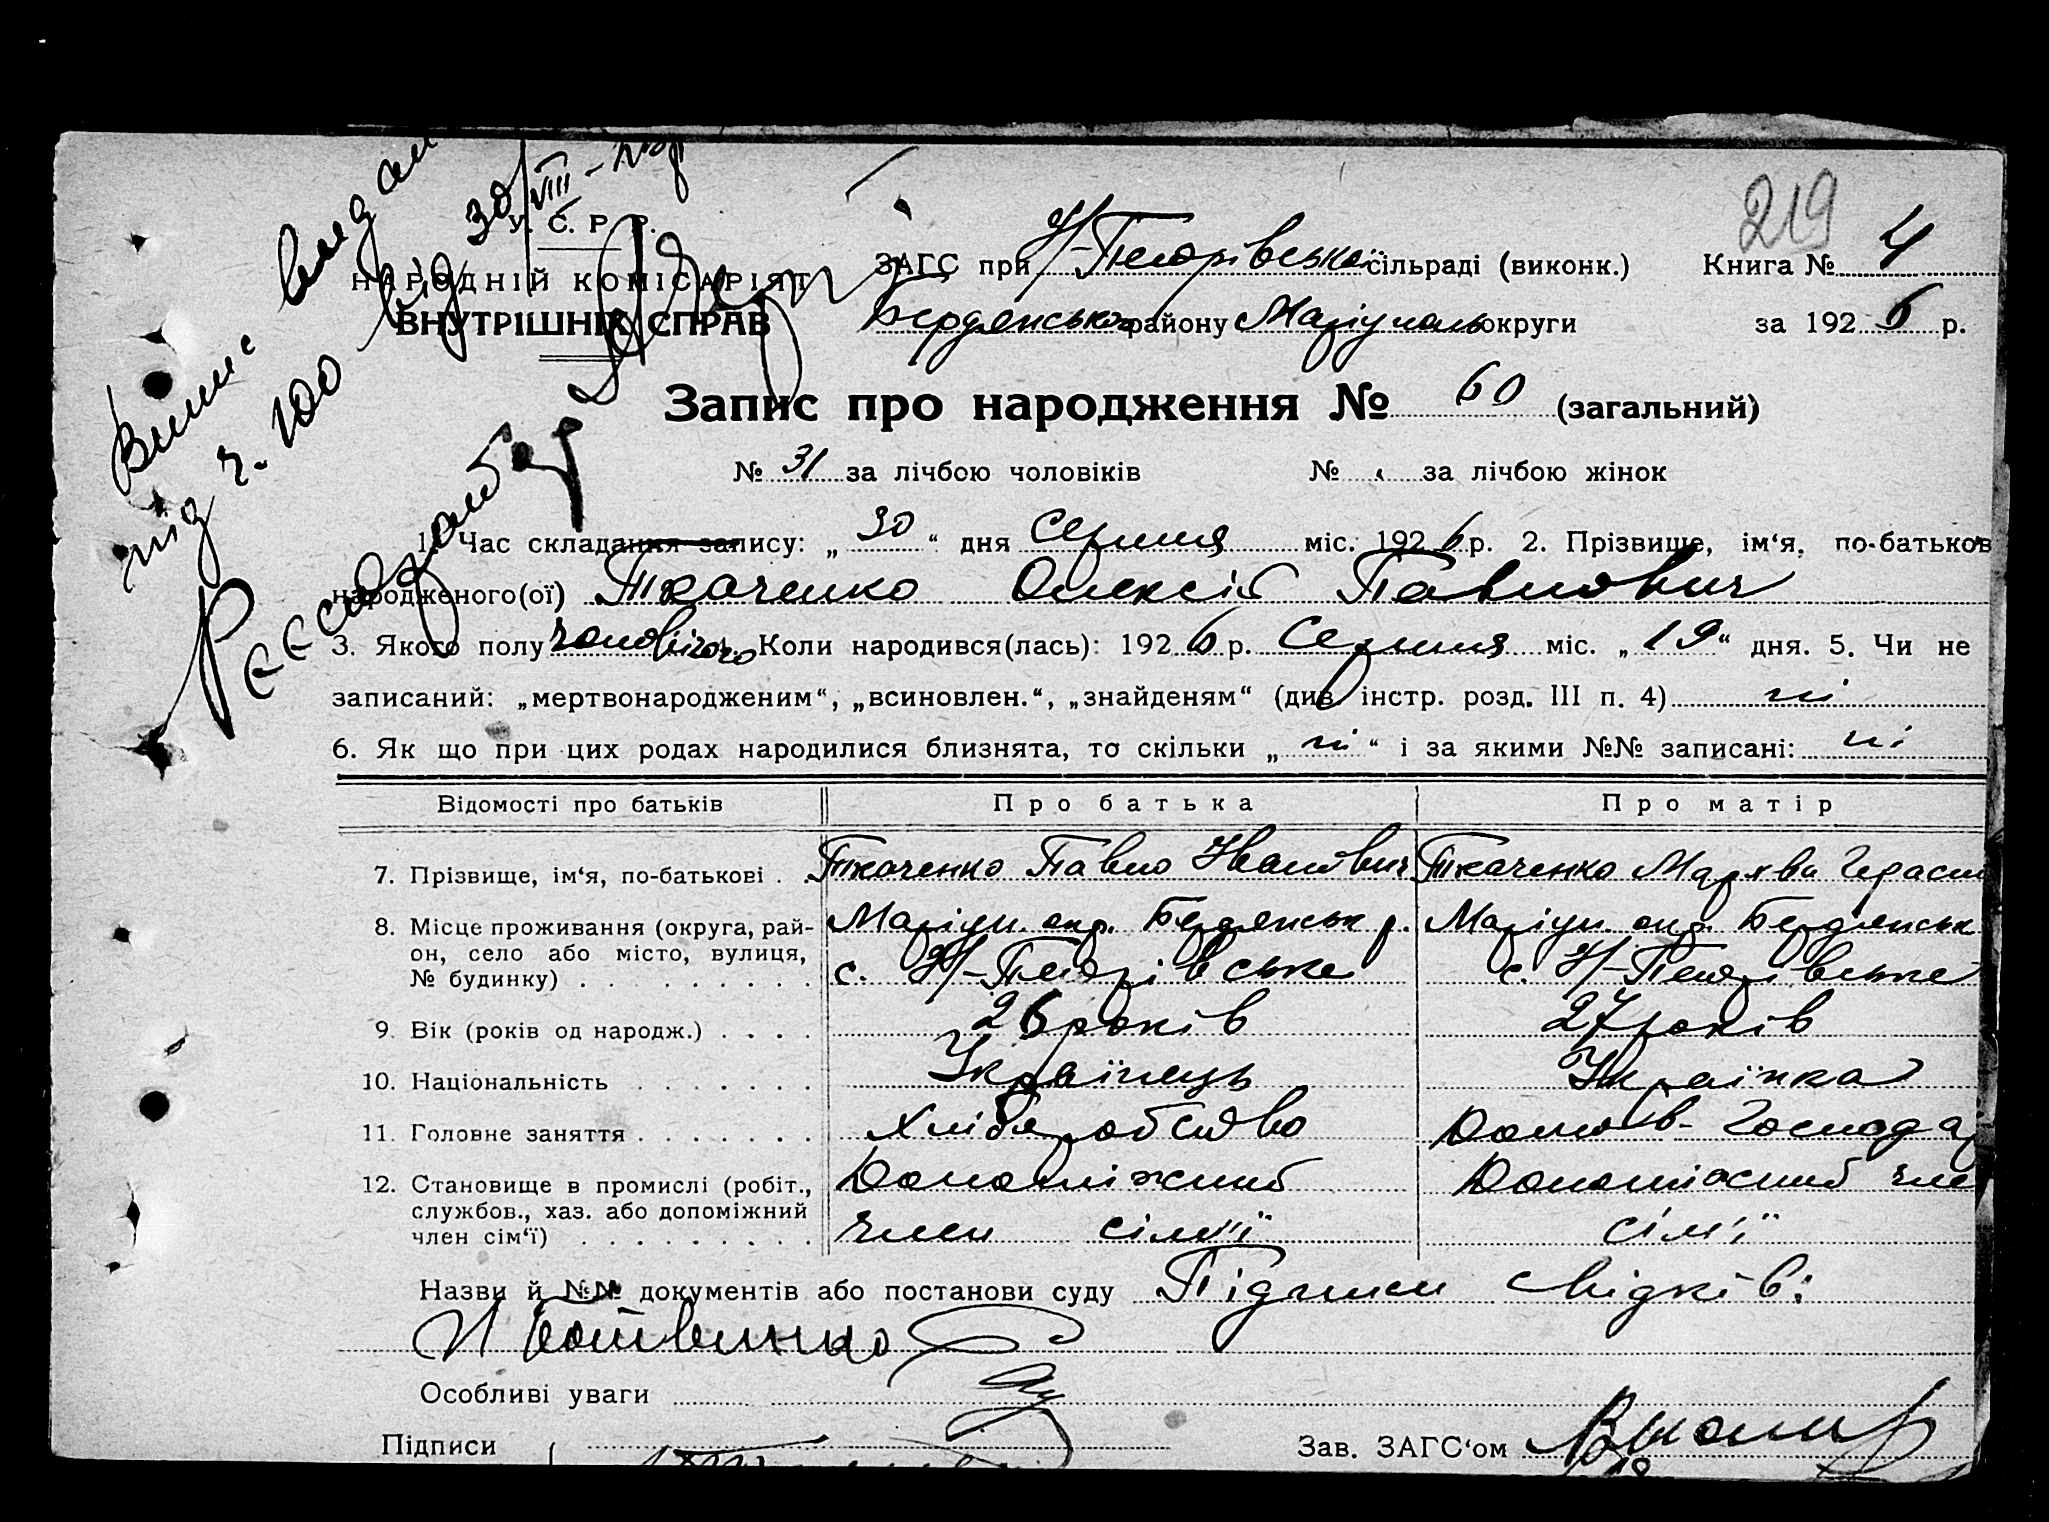 219
Випис видан
під ч. 100 від 30/VIII
У. С. Р. Р.
НАРОДНІЙ КОМІСАРІЯТ
ВНУТРІШНІХ СПРАВ
ЗАГС при сільраді (виконк.) Книга № 4
Бердянського району Маріуполь округи за 1926 р.
Запис про народження № 60 (загальний)
№ 31 за лічбою чоловіків № за лічбою жінок
1. Час складання запису: „30“ дня Серпня міс. 1926 р. 2. Прізвище, ім‘я, по-батьков
народженого(ої) Ткаченко Олексій Павлович
3. Якого полу чоловічого Коли народився(лась): 1926 р. Серпня міс. „19“ дня. 5. Чи не
записаний: „мертвонародженим“, „всиновлен.“, „знайденям“ (див. інстр. розд. III п. 4) ні
6. Як що при цих родах народилися близнята, то скільки „ні“ і за якими №№ записані: ні
Відомості про батьків Про батька Про матір
7. Прізвище, ім‘я, по-батькові . . Ткаченко Павло Іванович Ткаченко
8. Місце проживання (округа, рай- Маріуп. окр. Бердянськ р. Маріуп. окр. Бердянськ
он, село або місто, вулиця, с. с.
№ будинку) . . . . . . . . .
9. Вік (років од народж.) . . . . 26 років 27 років
10. Національність . . . . . . . Українець Українка
11. Головне заняття . . . . . . . Хліборобство
12. Становище в промислі (робіт., Допоміжний Допоміжний член
службов., хаз. або допоміжний
член сім‘ї) . . . . . . . . . член сім'ї сім'ї
Назви й №№ документів або постанови суду Підписи свідків:
Особливі уваги
Підписи Зав. ЗАГС‘ом